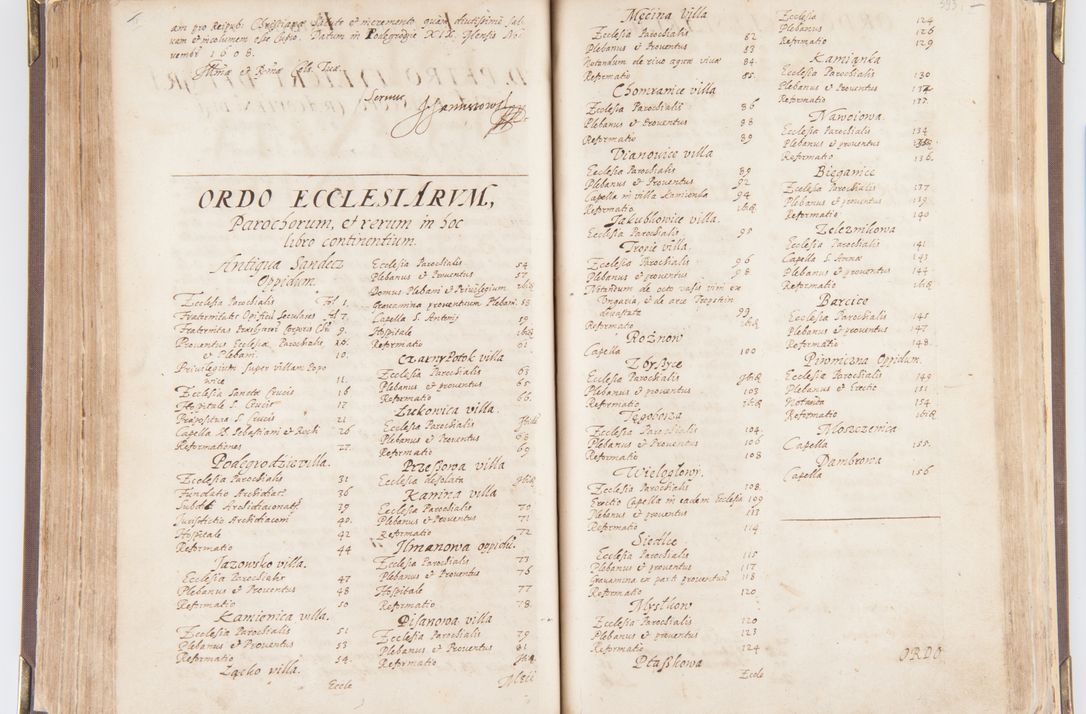 am pro Reipub: Christianæ Salute et incremento quàm diutissimè sal-
uam et incolumem esse cupio. Datum in Podegrodzie XIX. Mensis No-
uembr: 1608.
Seruus
ORDO ECCLESIARVM,
Parochorum, et rerum in hoc
libro continentium.
Antiqua Sandecz
Oppidum.
Ecclesia Parochialis Fol. 1.
Fraternitatis Opificu Seculares fol 7.
Fraternitas Corporis 9.
Prouentus Ecclesiæ Parochialis 10.
et Plebani. 10.
Priuilegium super villam Popo
wice 11.
Ecclesia Sanctæ Crucis 16
Hospitale S. Crucis 17
Præpositura S. Crucis 21
Capella S. Sebastiani et Rochi 26
Reformationes 27.
Podegrodzie villa.
Ecclesia Parochialis 31
Fundatio Archidiac 36
Archidiaconatus 39
Iurisdictio Archidiaconi 40.
Hospitale 42
Reformatio 44
Jazowsko villa.
Ecclesia Parochialis 47
Plebanus et Prouentus 48
Reformatio 50
Kamienica villa.
Ecclesia Parochialis 51
Plebanus et Prouentus 53
Reformatio 54.
Łącko villa.
Eccle
Ecclesia Parochialis 54
Plebanus et Prouentus 57
Domus Plebani et Priuilegium ibid.
Grauamina prouentuum Plebani 58
Capella S. 59
Hospitale ibid
Reformatio 61
Czarnypotok villa
Ecclesia Parochialis 63
Plebanus et prouentus 65
Reformatio 66.
Łukowica villa.
Ecclesia Parochialis ibid
Plebanus et Prouentus 68
Reformatio 69
Przeszowa villa
Ecclesia desolata ibid.
Kamina villa
Ecclesia Parochialis 70
Plebanus et Prouentus 71
Reformatio 72
Ilmanowa oppidu.
Ecclesia Parochialis 73
Plebanus et Prouentus 75
Hospitale 77
Reformatio 78.
Pisanowa villa
Ecclesia Parochialis 79
Plebanus et Prouentus 81
Reformatio ibid.
Męcina villa
Ecclesia Parochialis 82
Plebanus et Prouentus 83
Notandum de riuo aquæ viuæ 84.
Reformatio 85.
Chomranice villa
Ecclesia Parochialis 86
Plebanus et Prouentus 88
Reformatio 89
Vianouice villa
Ecclesia Parochialis 89
Plebanus et Prouentus 92
Capella in villa Kamienka 94
Reformatio ibid.
Jakubkowice villa.
Ecclesia Parochialis 95
Tropie villa.
Ecclesia Parochialis 96
Plebanus et prouentus 98
Notandum de octo vasis vini ex
Vngaria, et de arce
deuastata 99
Reformatio ibid.
Rożnow
Capella 100
Zbyszyce
Ecclesia Parochialis ibid
Plebanus et prouentus 103
Reformatio ibid.
Tęgoborza
Ecclesia Parochialis 104.
Plebanus et Prouentus 106
Reformatio 108
Wielogłowy.
Ecclesia Parochialis 108.
Erectio Capellæ in eadem Ecclesia 109
Plebanus et prouentus 113
Reformatio 114
Siedlce
Ecclesia Parochialis 115
Plebanus et prouentus 117
Grauamina ex parte prouentuum 118
Reformatio 120
Mystkow
Ecclesia Parochialis 120
Plebanus et prouentus 123
Reformatio 124
Ptaszkowa
Eccle
393.
Ecclesia 124
Plebanus 126
Reformatio 129
Kamianka
Ecclesia Parochialis 130
Plebanus et Prouentus 132
Reformatio 133.
Nawoiowa.
Ecclesia Parochialis 134
Plebanus et prouentus
Reformatio 136.
Bieganice
Ecclesia Parochialis 137
Plebanus et prouentus 139.
Reformatio 140
Zelezmikowa
Ecclesia Parochialis 141
Capella S. Annæ 143
Plebanus et prouentus 144
Reformatio ibid.
Barcice
Ecclesia Parochialis 145
Plebanus et prouentus 147.
Reformatio 148.
Piwniczna Oppidum.
Ecclesia Parochialis 149
Plebanus et Erectio 151
Notanda 154
Reformatio ibid.
Moszczenica
Capella 155.
Dambrowa
Capella 156
ORDO